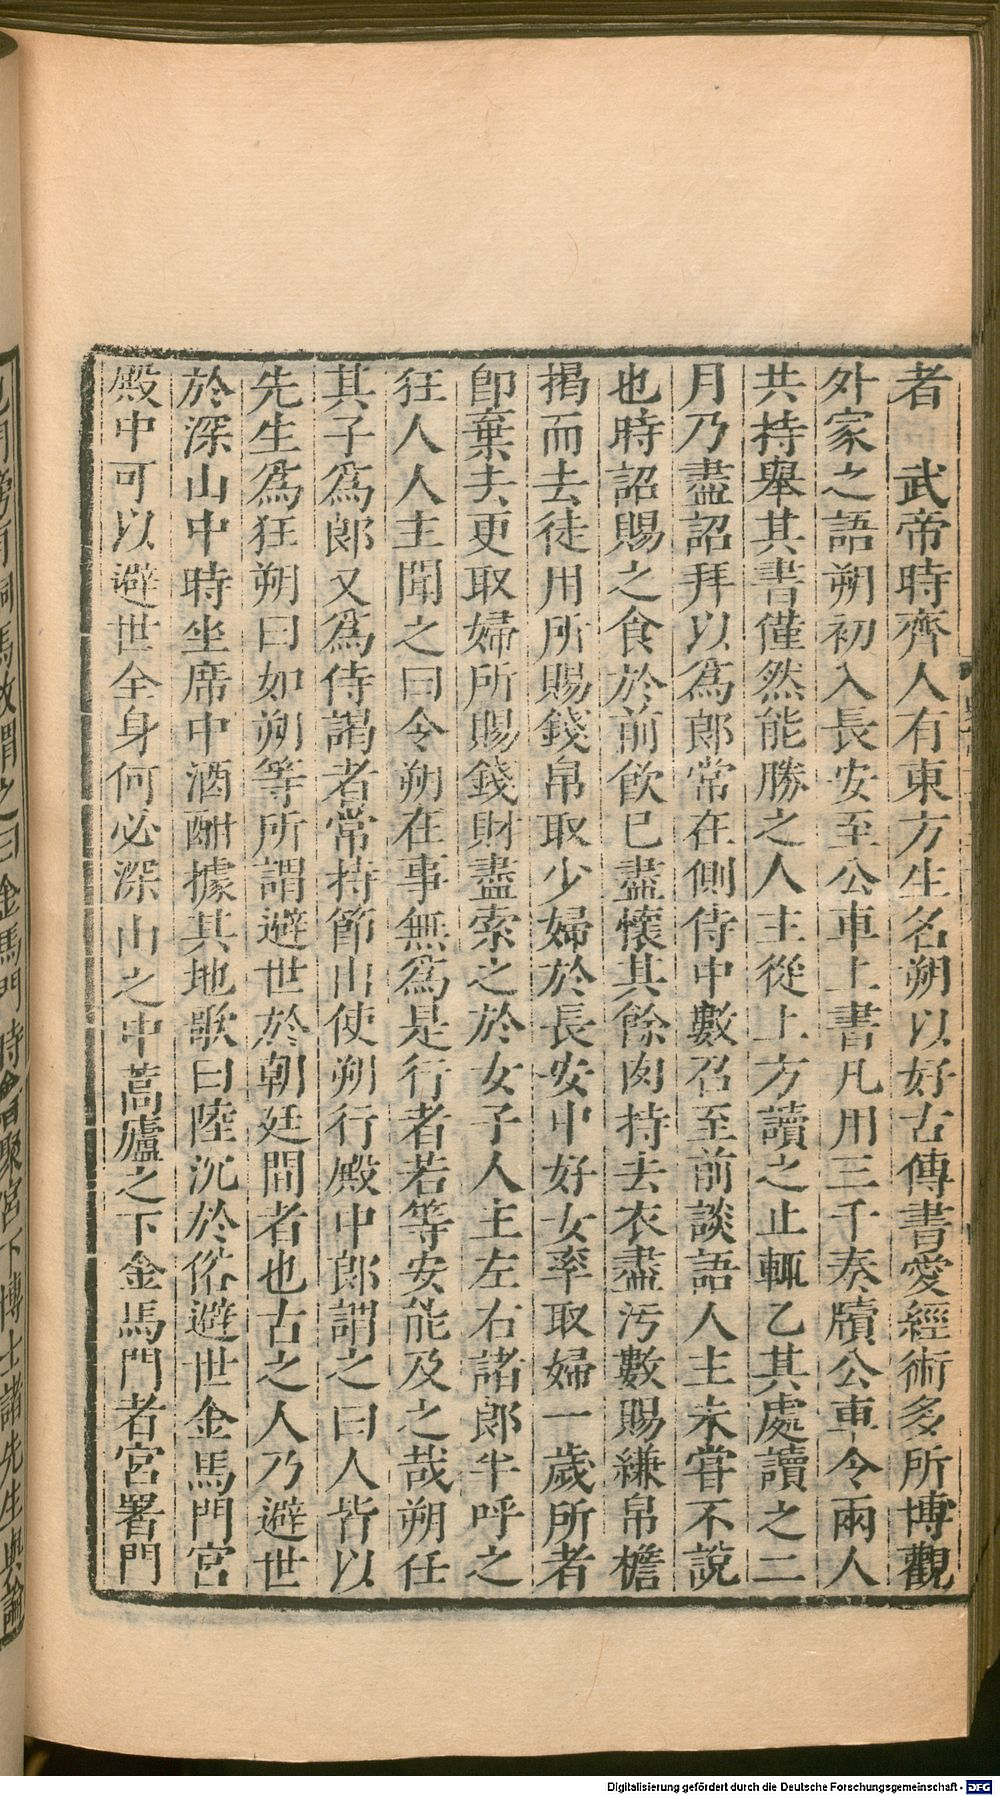 者　武帝時齊人有東方生名朔以好古傳書愛經術多所博觀
外家之語朔初入長安至公車上書凡用三千奏牘公車令兩人
共持舉其書僅然能勝之人主從上方讀之止輒乙其處讀之二
月乃盡詔拜以爲郎常在側侍中數召至前談語人主未嘗不說
也時詔賜之食於前飮已盡懷其餘肉持去衣盡汚數賜縑帛檐
揭而去徒用所賜錢帛取少婦於長安中好女率取婦一歲所者
卽棄去更取婦所賜錢財盡索之於女子人主左右諸郞半呼之
狂人人主聞之曰令朔在事無爲是行者若等安能及之哉朔任
其子爲郎又爲侍謁者常持節出使朔行殿中郎謂之曰人皆以
先生爲狂朔曰如朔等所謂避世於朝廷間者也古之人乃避世
於深山中時坐席中酒酣據其地歌曰陸沉於俗避世金馬門宮
殿中可以避世全身何必深山之中蒿廬之下金馬門者宮署門
馬故謂之曰金馬門時會聚宮下博士諸先生與論
Digitalisierung gefördert durch die Deutsche Forschungsgemeinschaft - DFG